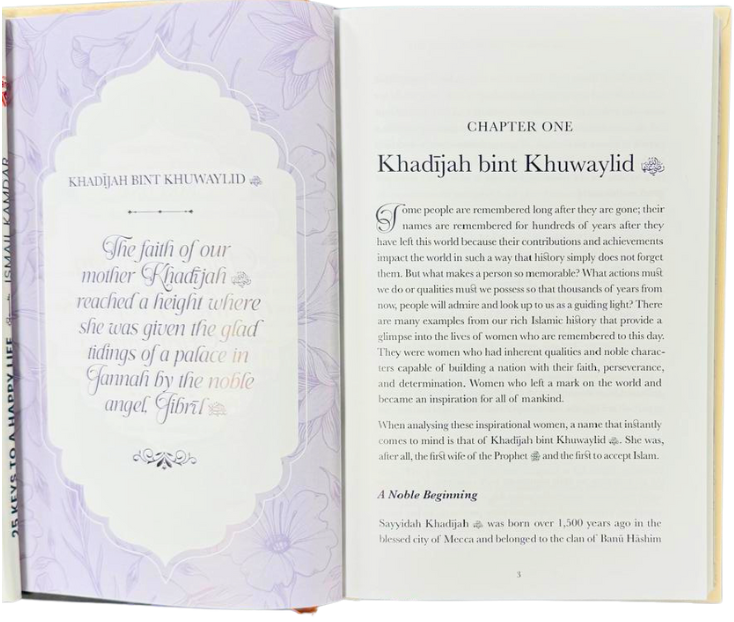 25 KEYS TO A HAPPY LIFE ISMAIL KAMDAR
KHADĪJAH BINT KHUWAYLID
The faith of our
mother Khadījah
reached a height where
she was given the glad
tidings of a palace in
Jannah by the noble
angel, Jibrīl
CHAPTER ONE
Khadījah bint Khuwaylid
Some people are remembered long after they are gone; their
names are remembered for hundreds of years after they
have left this world because their contributions and achievements
impact the world in such a way that history simply does not forget
them. But what makes a person so memorable? What actions must
we do or qualities must we possess so that thousands of years from
now, people will admire and look up to us as a guiding light? There
are many examples from our rich Islamic history that provide a
glimpse into the lives of women who are remembered to this day.
They were women who had inherent qualities and noble charac-
ters capable of building a nation with their faith, perseverance,
and determination. Women who left a mark on the world and
became an inspiration for all of mankind.
When analysing these inspirational women, a name that instantly
comes to mind is that of Khadījah bint Khuwaylid . She was,
after all, the first wife of the Prophet ﷺ and the first to accept Islam.
A Noble Beginning
Sayyidah Khadījah was born over 1,500 years ago in the
blessed city of Mecca and belonged to the clan of Banū Hāshim
3